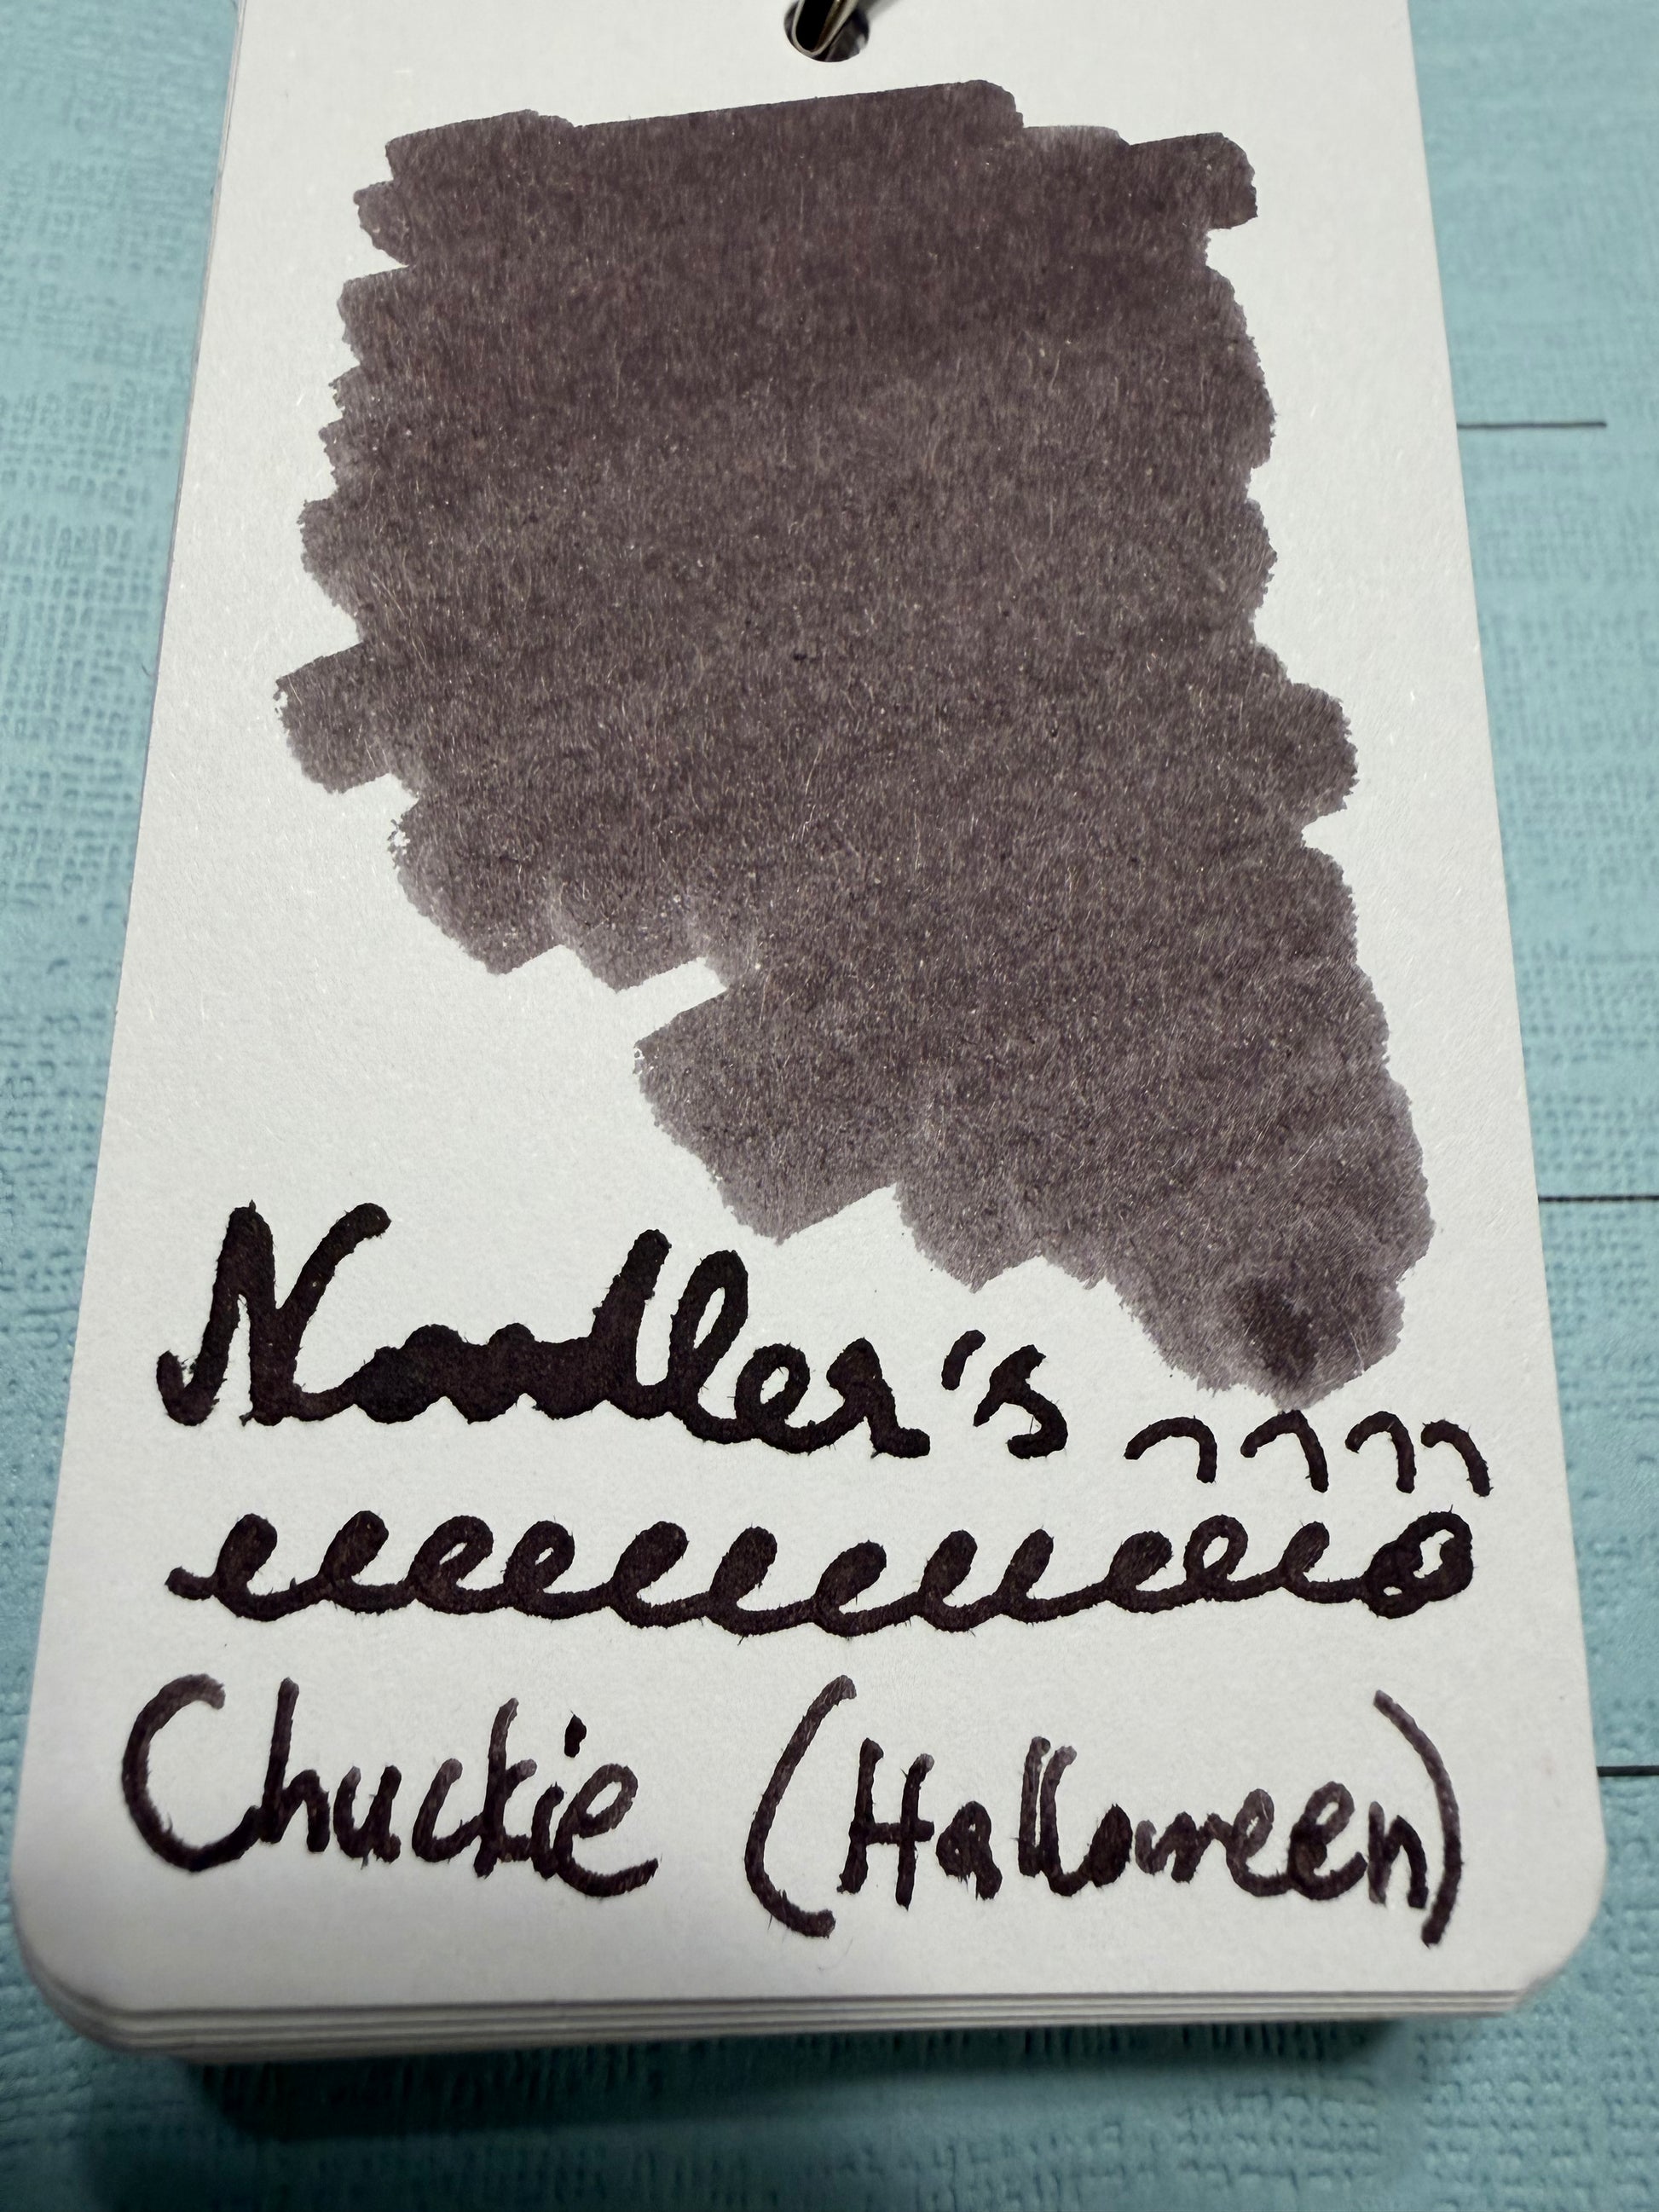 Noodler's
Chuckie (Halloween)